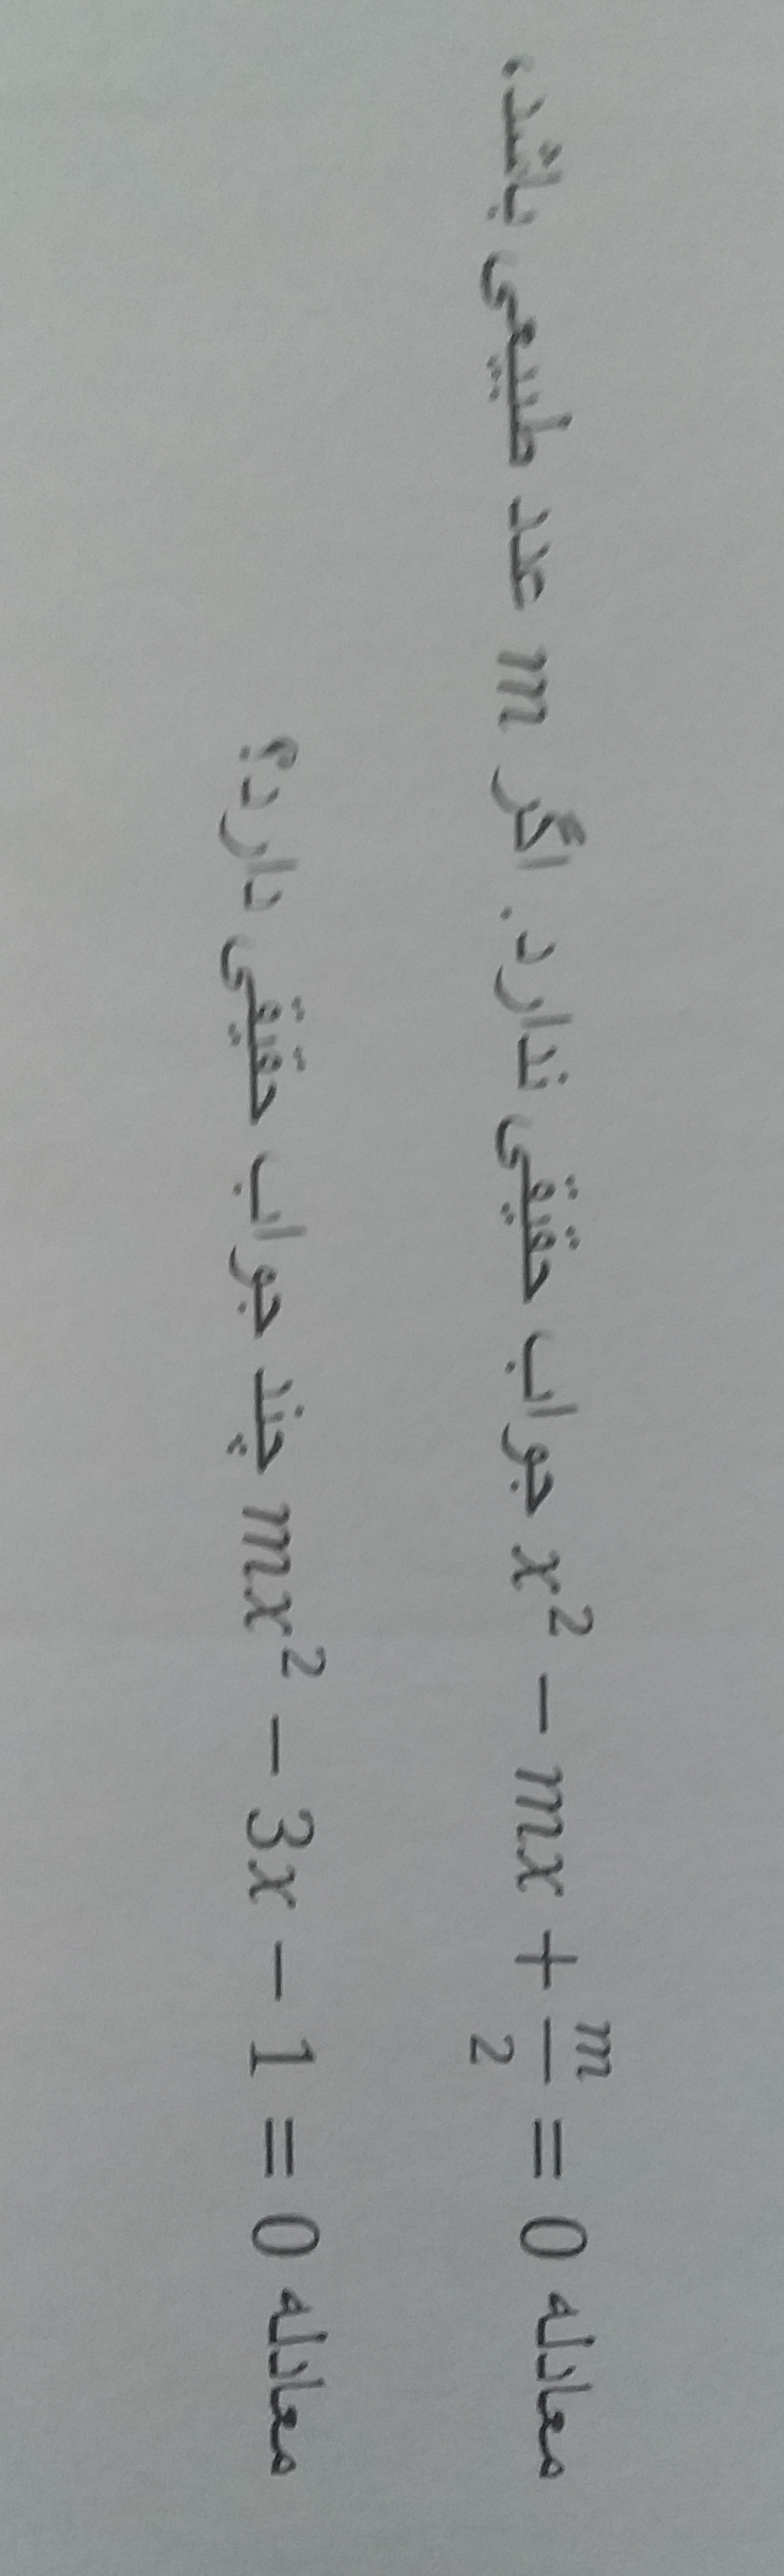 معادله x² − mx + m/2 = 0 جواب حقیقی ندارد. اگر m عدد طبیعی باشد،
معادله mx² − 3x − 1 = 0 چند جواب حقیقی دارد؟